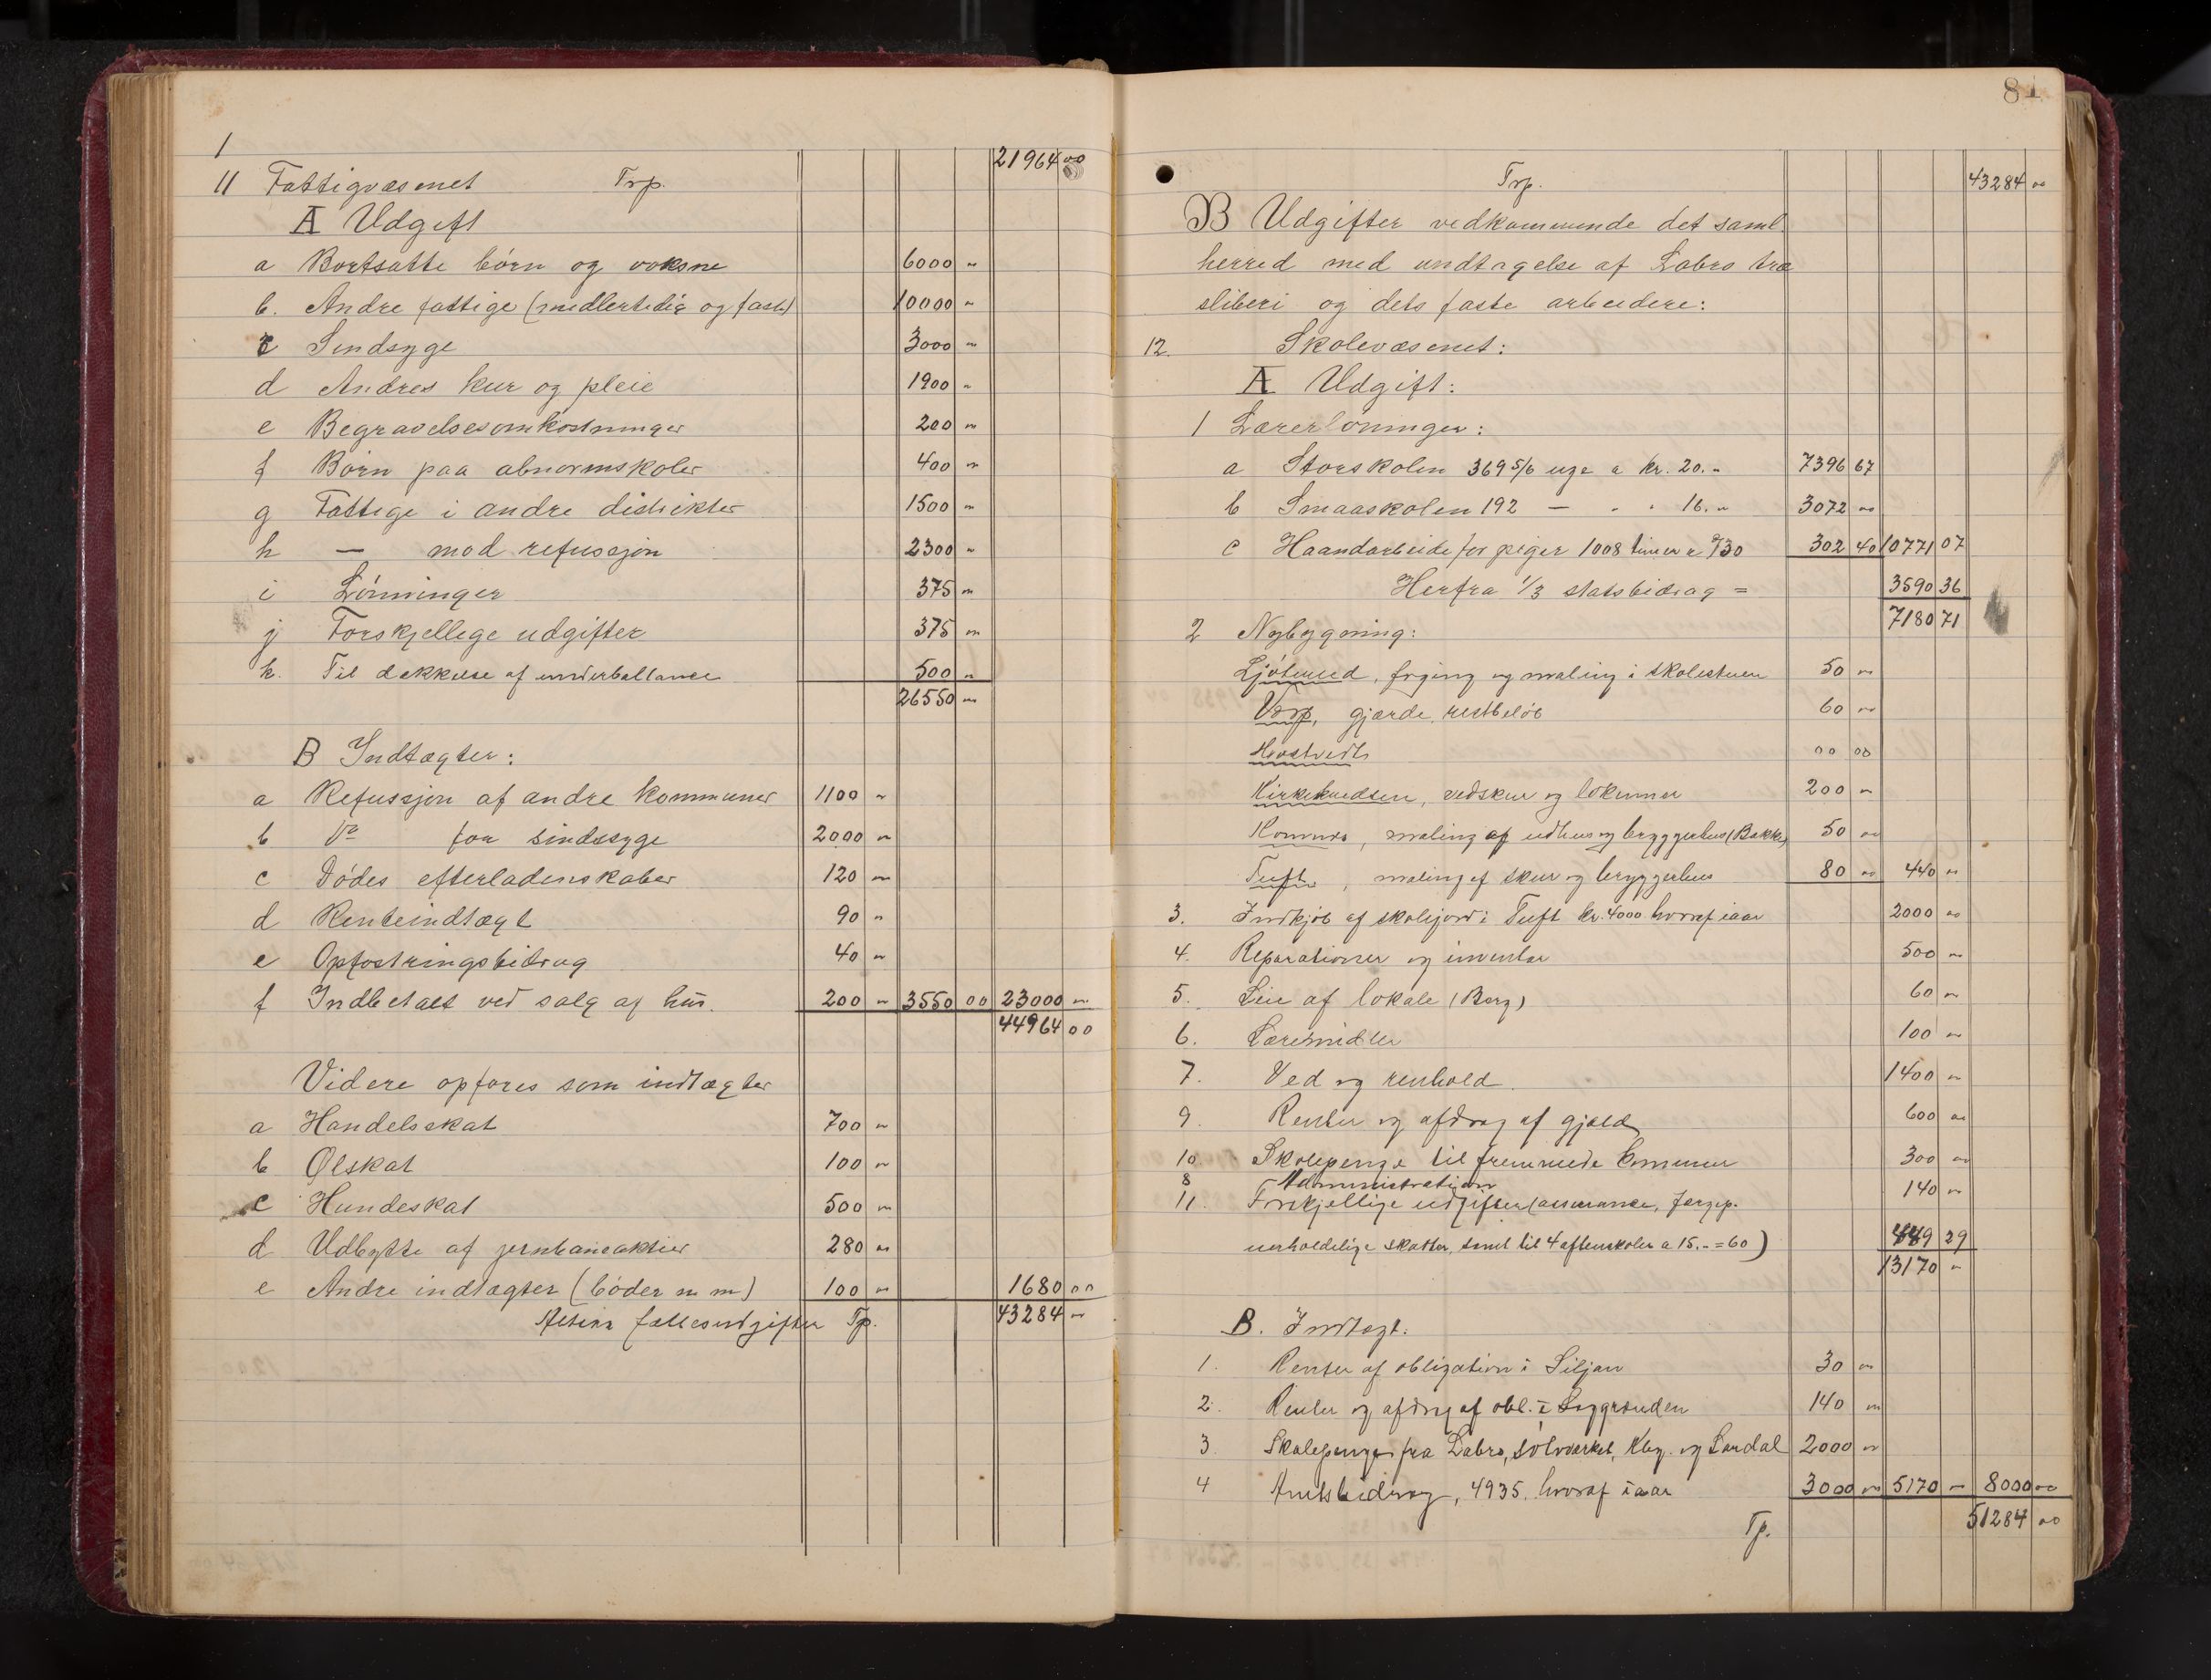 1
21964 00
11 Fattigvæsenet Trp.
A Udgift
a Bortsatte børn og voksne 6000 "
b. Andre fattige (midlertidig og faste) 10000 "
c Sindsyge 3000 "
d Andres kur og pleie 1900 "
e Begravelsesomkostninger 200 "
f Børn paa abnormskoler 400 "
g Fattige i andre distrikter 1500 "
h — mod refusjon 2300 "
i Lønninger 375 "
j Forskjellege udgifter 375 "
k. Til dekkelse af underballance 500 "
26550 "
B Indtægter:
a Refusjon af andre kommuner 1100 "
b Do for sindssyge 2000 "
c Dødes efterladenskaber 120 "
d Renteindtægt 90 "
e Opfostringsbidrag 40 "
f Indbetalt ved salg af hus. 200 " 3550 00 23000 "
44964 00
Videre opføres som indtægter
a Handelsskat 700 "
b Ølskat 100 "
c Hundeskat 500 "
d Udbytte af jernbaneaktier 280 "
e Andre indtægter (bøder m m) 100 " 1680 00
Altsaa fællesudgifter Tp. 43284 "
84
Trp. 43284 00
B Udgifter vedkommende det saml.
herred med undtagelse af Labro træ
sliberi og dets faste arbeidere:
12. Skolevæsenet:
A Udgift:
1 Lærerlønninger:
a Storskolen 369 5/6 uge a kr. 20. " 7396 67
b Smaaskolen 192 — " " 16. " 3072 00
c Haandarbeide for piger 1008 timer a 0/30 302 40 10771 07
Herfra 1/3 statsbidrag = 3590 36
7180 71
2 Nybygning:
Ljøterud, forging og maling i skolestuen 50 "
Vorp, gjærde, restbeløb 60 "
Hovstvedt 00 00
Kirkeknedsen, vedskur og lokummer 200 "
Komnes, maling af udhus og bryggerhus (Bakke) 50 00
Tufte, maling af skur og bryggerhus 80 00 440 "
3. Indkjøb af skolejord i Tuft kr. 4000 hvoraf iaar 2000 00
4. Reparationer og inventar 500 "
5. Leie af lokale (Berg) 60 "
6. Læremidler 100 "
7. Ved og renhold. 1400 "
9. Renter og afdrag af gjæld 600 00
10. Skolepenge til fremmede kommuner 300 00
8 Administration 140 "
11. Forskjellige udgifter (assurance, forgjep.
uerholdelige skatter, samt til 4 aftenskoler a 15. " = 60) 449 29
13170 "
B. Indtægt:
1. Renter af obligation i Siljan 30 "
2. Renter og afdrag af obl. i Laggrænden 140 "
3. Skolepenger fra Labro, sølvverket, Kbg. og Sandal 2000 "
4 Amtsbidrag, 4935. hvoraf iaar 3000 " 5170 — 8000 00
Tp. 51284 00